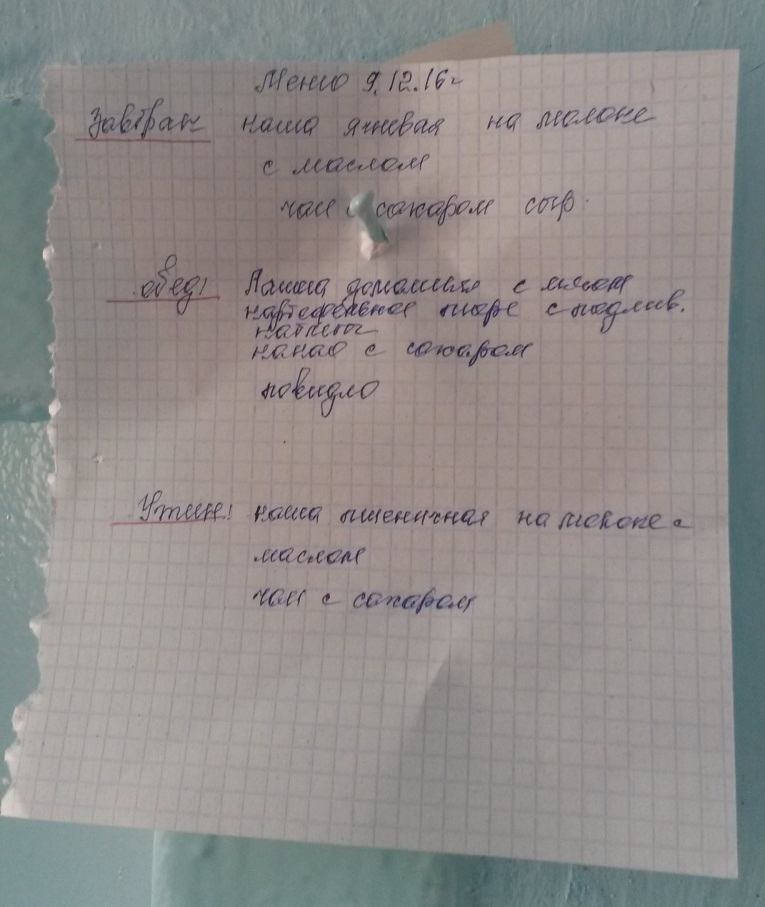 Меню 9.12.16г
Завтрак каша ячневая на молоке
с маслом
чай с сахаром сыр.
обед: Лапша домашняя с мясом
картофельное пюре с подлив.
котлеты
какао с сахаром
повидло
Ужин: каша пшеничная на молоке с
маслом
чай с сахаром